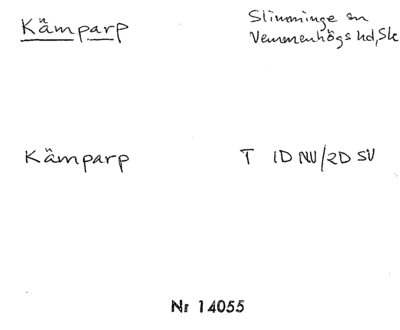 Kämparp
Slimminge sn
Vemmenhögs hd, Sk
Kämparp
T 1D NV/2D SV
Nr 14055